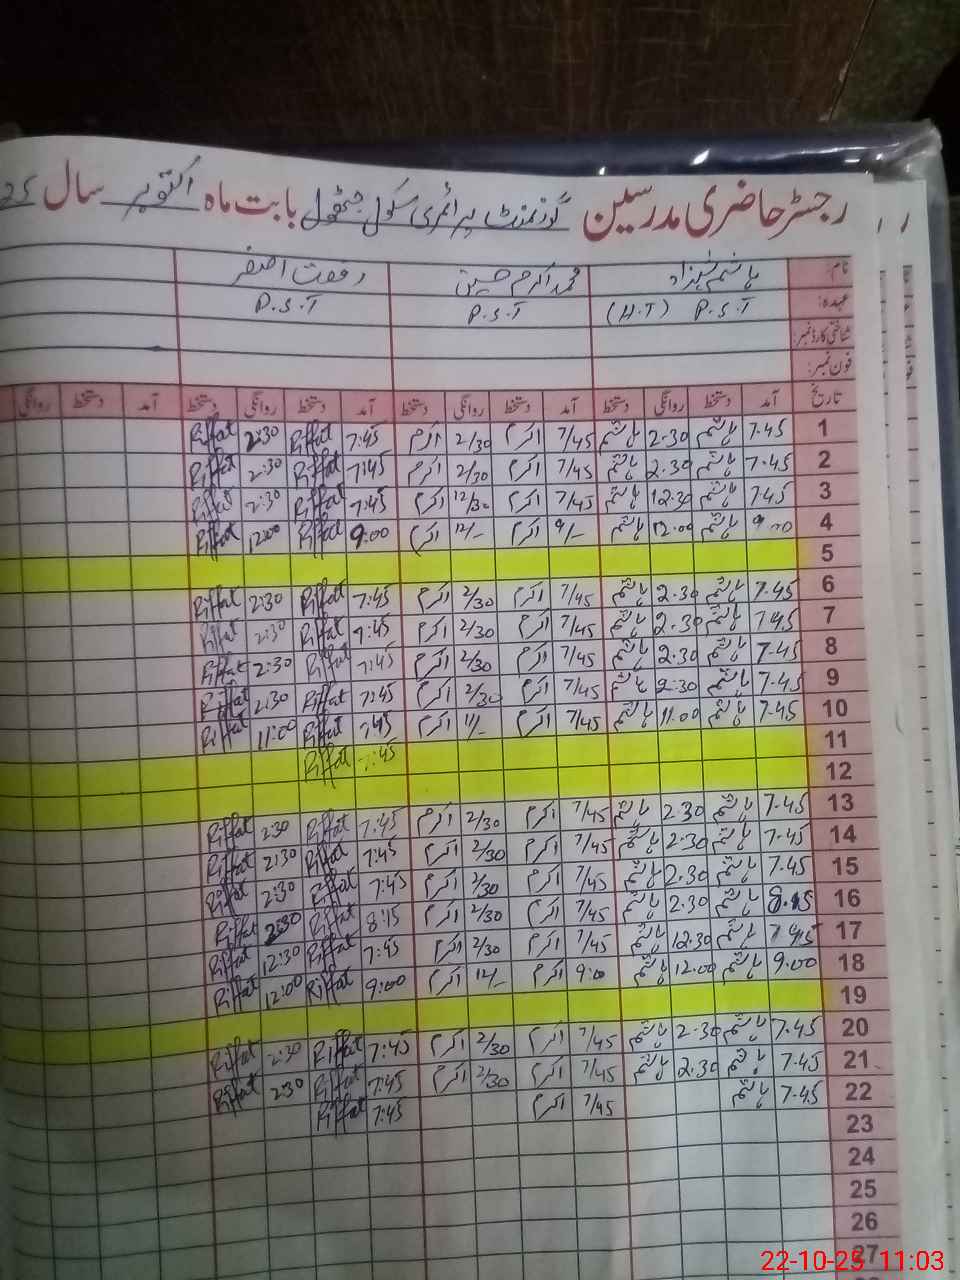 رجسٹر حاضری مدرسین گورنمنٹ پرائمری سکول جٹھول بابت ماہ اکتوبر سال 25
نام: ہاشم شہزاد محمد اکرم حسین رفعت اصغر
عہدہ: P.S.T (H.T) P.S.T P.S.T
شناختی کارڈ نمبر:
فون نمبر:
تاریخ آمد دستخط روانگی دستخط آمد دستخط روانگی دستخط آمد دستخط روانگی دستخط آمد دستخط روانگی
1 7.45 ہاشم 2.30 ہاشم 7/45 اکرم 2/30 اکرم 7:45 Riffat 2:30 Riffat
2 7.45 ہاشم 2.30 ہاشم 7/45 اکرم 2/30 اکرم 7:45 Riffat 2:30 Riffat
3 7.45 ہاشم 12.30 ہاشم 7/45 اکرم 12/30 اکرم 7:45 Riffat 2:30 Riffat
4 9.00 ہاشم 12.00 ہاشم 9/- اکرم 12/- اکرم 9:00 Riffat 12:00 Riffat
5
6 7.45 ہاشم 2.30 ہاشم 7/45 اکرم 2/30 اکرم 7:45 Riffat 2:30 Riffat
7 7.45 ہاشم 2.30 ہاشم 7/45 اکرم 2/30 اکرم 7:45 Riffat 2:30 Riffat
8 7.45 ہاشم 2.30 ہاشم 7/45 اکرم 2/30 اکرم 7:45 Riffat 2:30 Riffat
9 7.45 ہاشم 2.30 ہاشم 7/45 اکرم 2/30 اکرم 7:45 Riffat 2:30 Riffat
10 7.45 ہاشم 11.00 ہاشم 7/45 اکرم 11/- اکرم 7:45 Riffat 11:00 Riffat
11 7:45 Riffat
12
13 7.45 ہاشم 2.30 ہاشم 7/45 اکرم 2/30 اکرم 7:45 Riffat 2:30 Riffat
14 7.45 ہاشم 2.30 ہاشم 7/45 اکرم 2/30 اکرم 7:45 Riffat 2:30 Riffat
15 7.45 ہاشم 2.30 ہاشم 7/45 اکرم 2/30 اکرم 7:45 Riffat 2:30 Riffat
16 8.15 ہاشم 2.30 ہاشم 7/45 اکرم 2/30 اکرم 8:15 Riffat 2:30 Riffat
17 7.45 ہاشم 12.30 ہاشم 7/45 اکرم 2/30 اکرم 7:45 Riffat 12:30 Riffat
18 9.00 ہاشم 12.00 ہاشم 9:0 اکرم 12/- اکرم 9:00 Riffat 12:00 Riffat
19
20 7.45 ہاشم 2.30 ہاشم 7/45 اکرم 2/30 اکرم 7:45 Riffat 2:30 Riffat
21 7.45 ہاشم 2.30 ہاشم 7/45 اکرم 2/30 اکرم 7:45 Riffat 2:30 Riffat
22 7.45 ہاشم 7/45 اکرم 7:45 Riffat
23
24
25
26
27
22-10-25 11:03